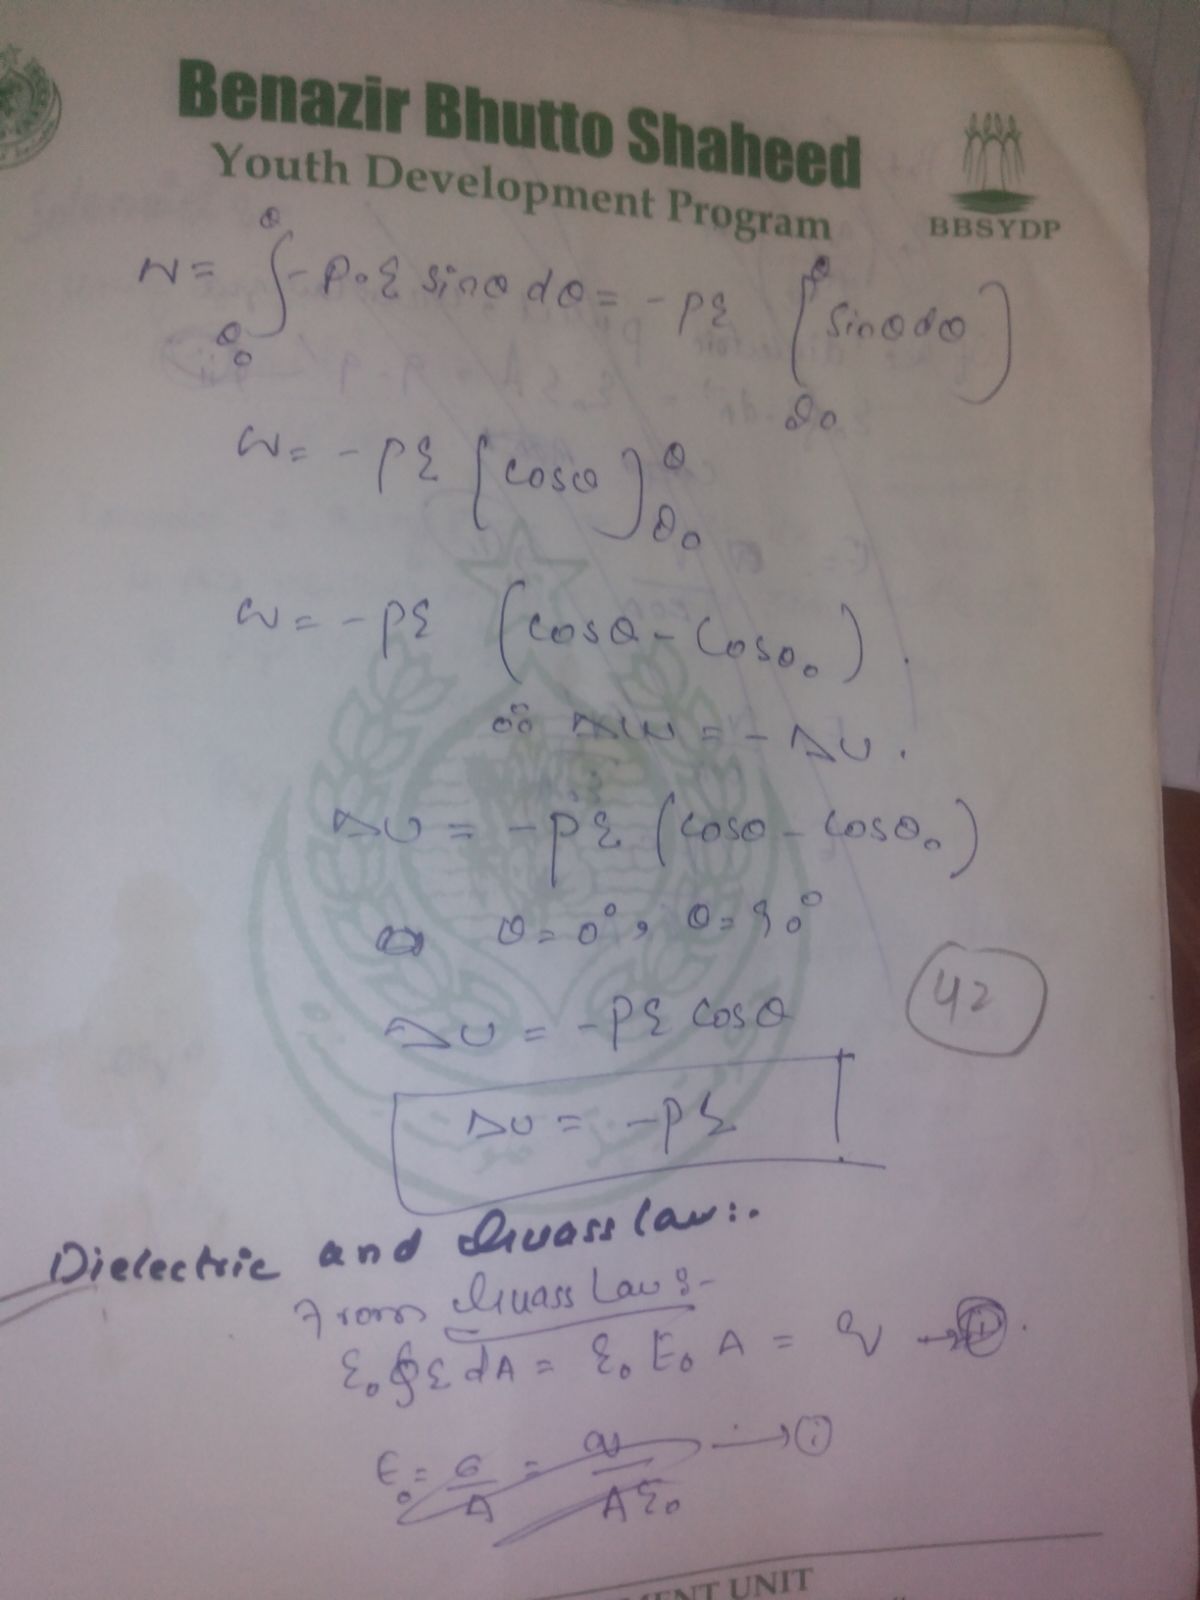 Benazir Bhutto Shaheed
Youth Development Program
BBSYDP
W = ∫_{θ₀}^{θ} - P·ε sinθ dθ = - pε [∫_{θ₀}^{θ} sinθ dθ]
W = - pε [cosθ]_{θ₀}^{θ}
W = - pε (cosθ - cosθ₀).
∴ ΔW = - ΔU.
ΔU = - pε (cosθ - cosθ₀)
θ = 0°, θ = 90°
42
ΔU = - pε cosθ
ΔU = - pε
Dielectric and Guass law:.
From Guass Law:-
ε₀ ∮ε dA = ε₀ E₀ A = q → (i).
E₀ = σ/A = q/Aε₀ → (i)
MENT UNIT